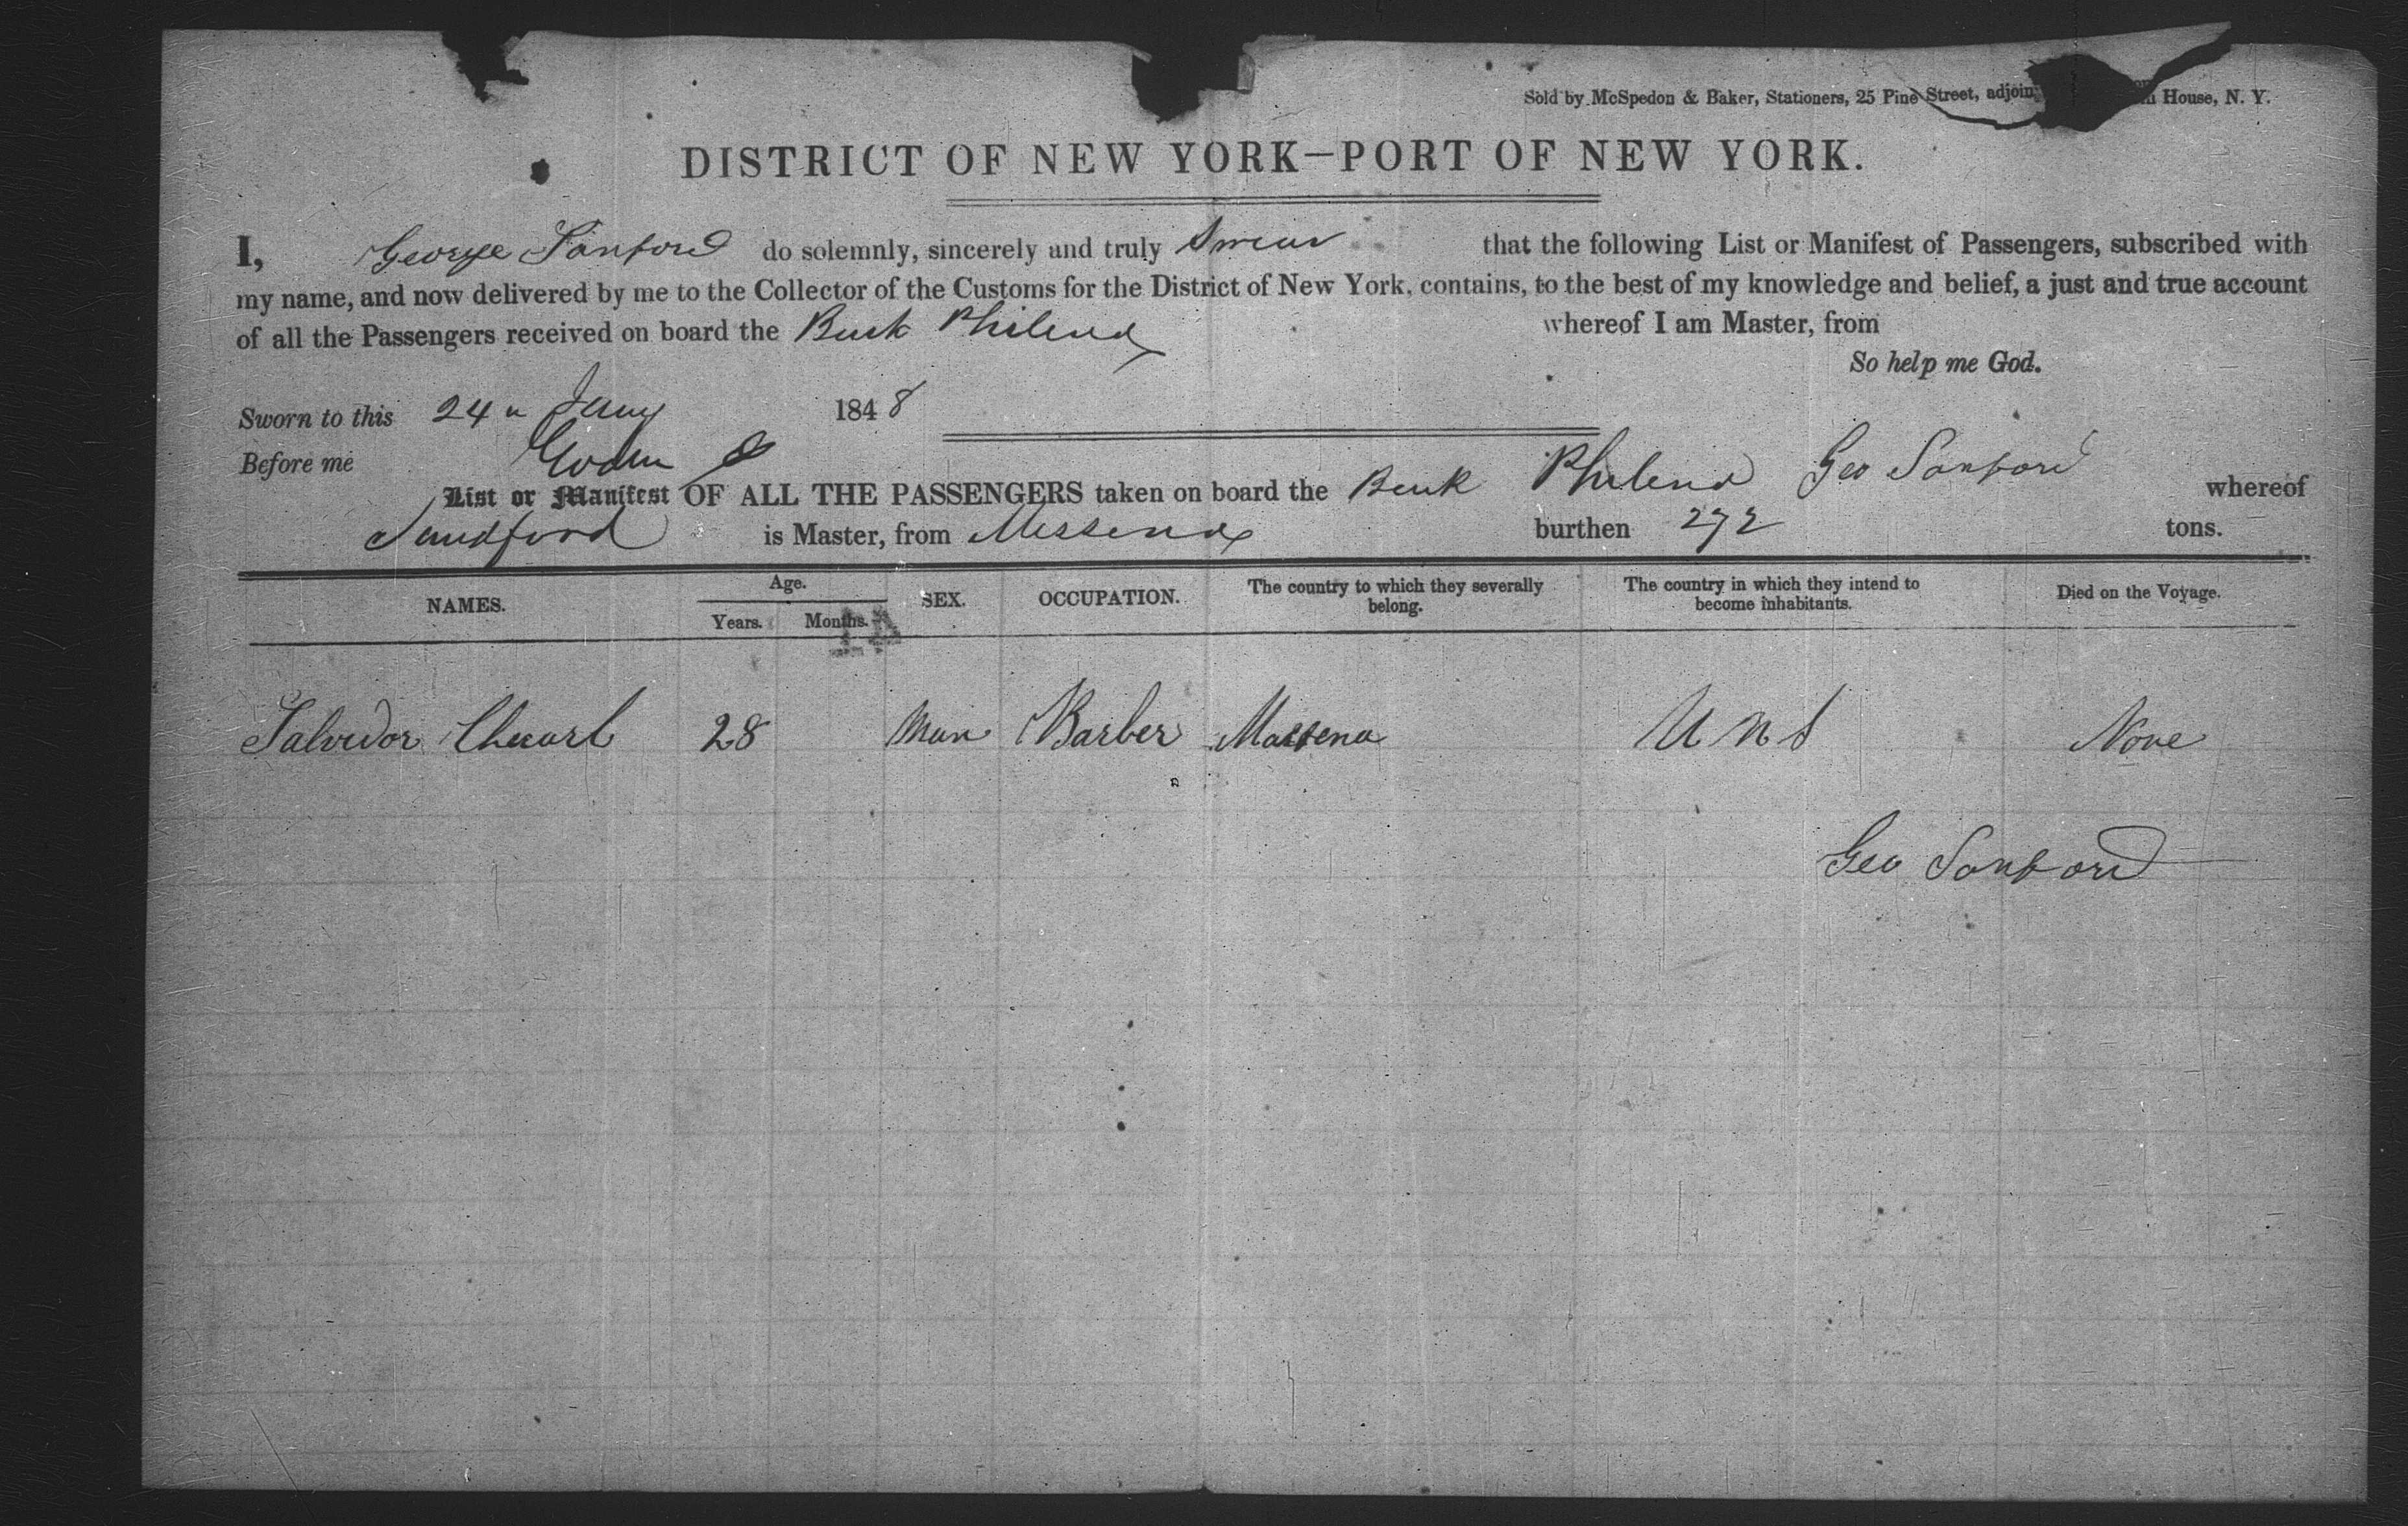 Sold by McSpedon & Baker, Stationers, 25 Pine Street, adjoin House, N. Y.
DISTRICT OF NEW YORK—PORT OF NEW YORK.
I, George Sanford do solemnly, sincerely and truly Swear that the following List or Manifest of Passengers, subscribed with
my name, and now delivered by me to the Collector of the Customs for the District of New York, contains, to the best of my knowledge and belief, a just and true account
of all the Passengers received on board the Bark Philena whereof I am Master, from
So help me God.
Sworn to this 24 Jany 1848
Before me
List or Manifest OF ALL THE PASSENGERS taken on board the Bark Philena Geo Sanford whereof
Sandford is Master, from Messena burthen 272 tons.
NAMES. Age. SEX. OCCUPATION. The country to which they severally belong. The country in which they intend to become inhabitants. Died on the Voyage.
Years. Months.
Salvador 28 Man Barber Massena U N S None
Geo Sanford